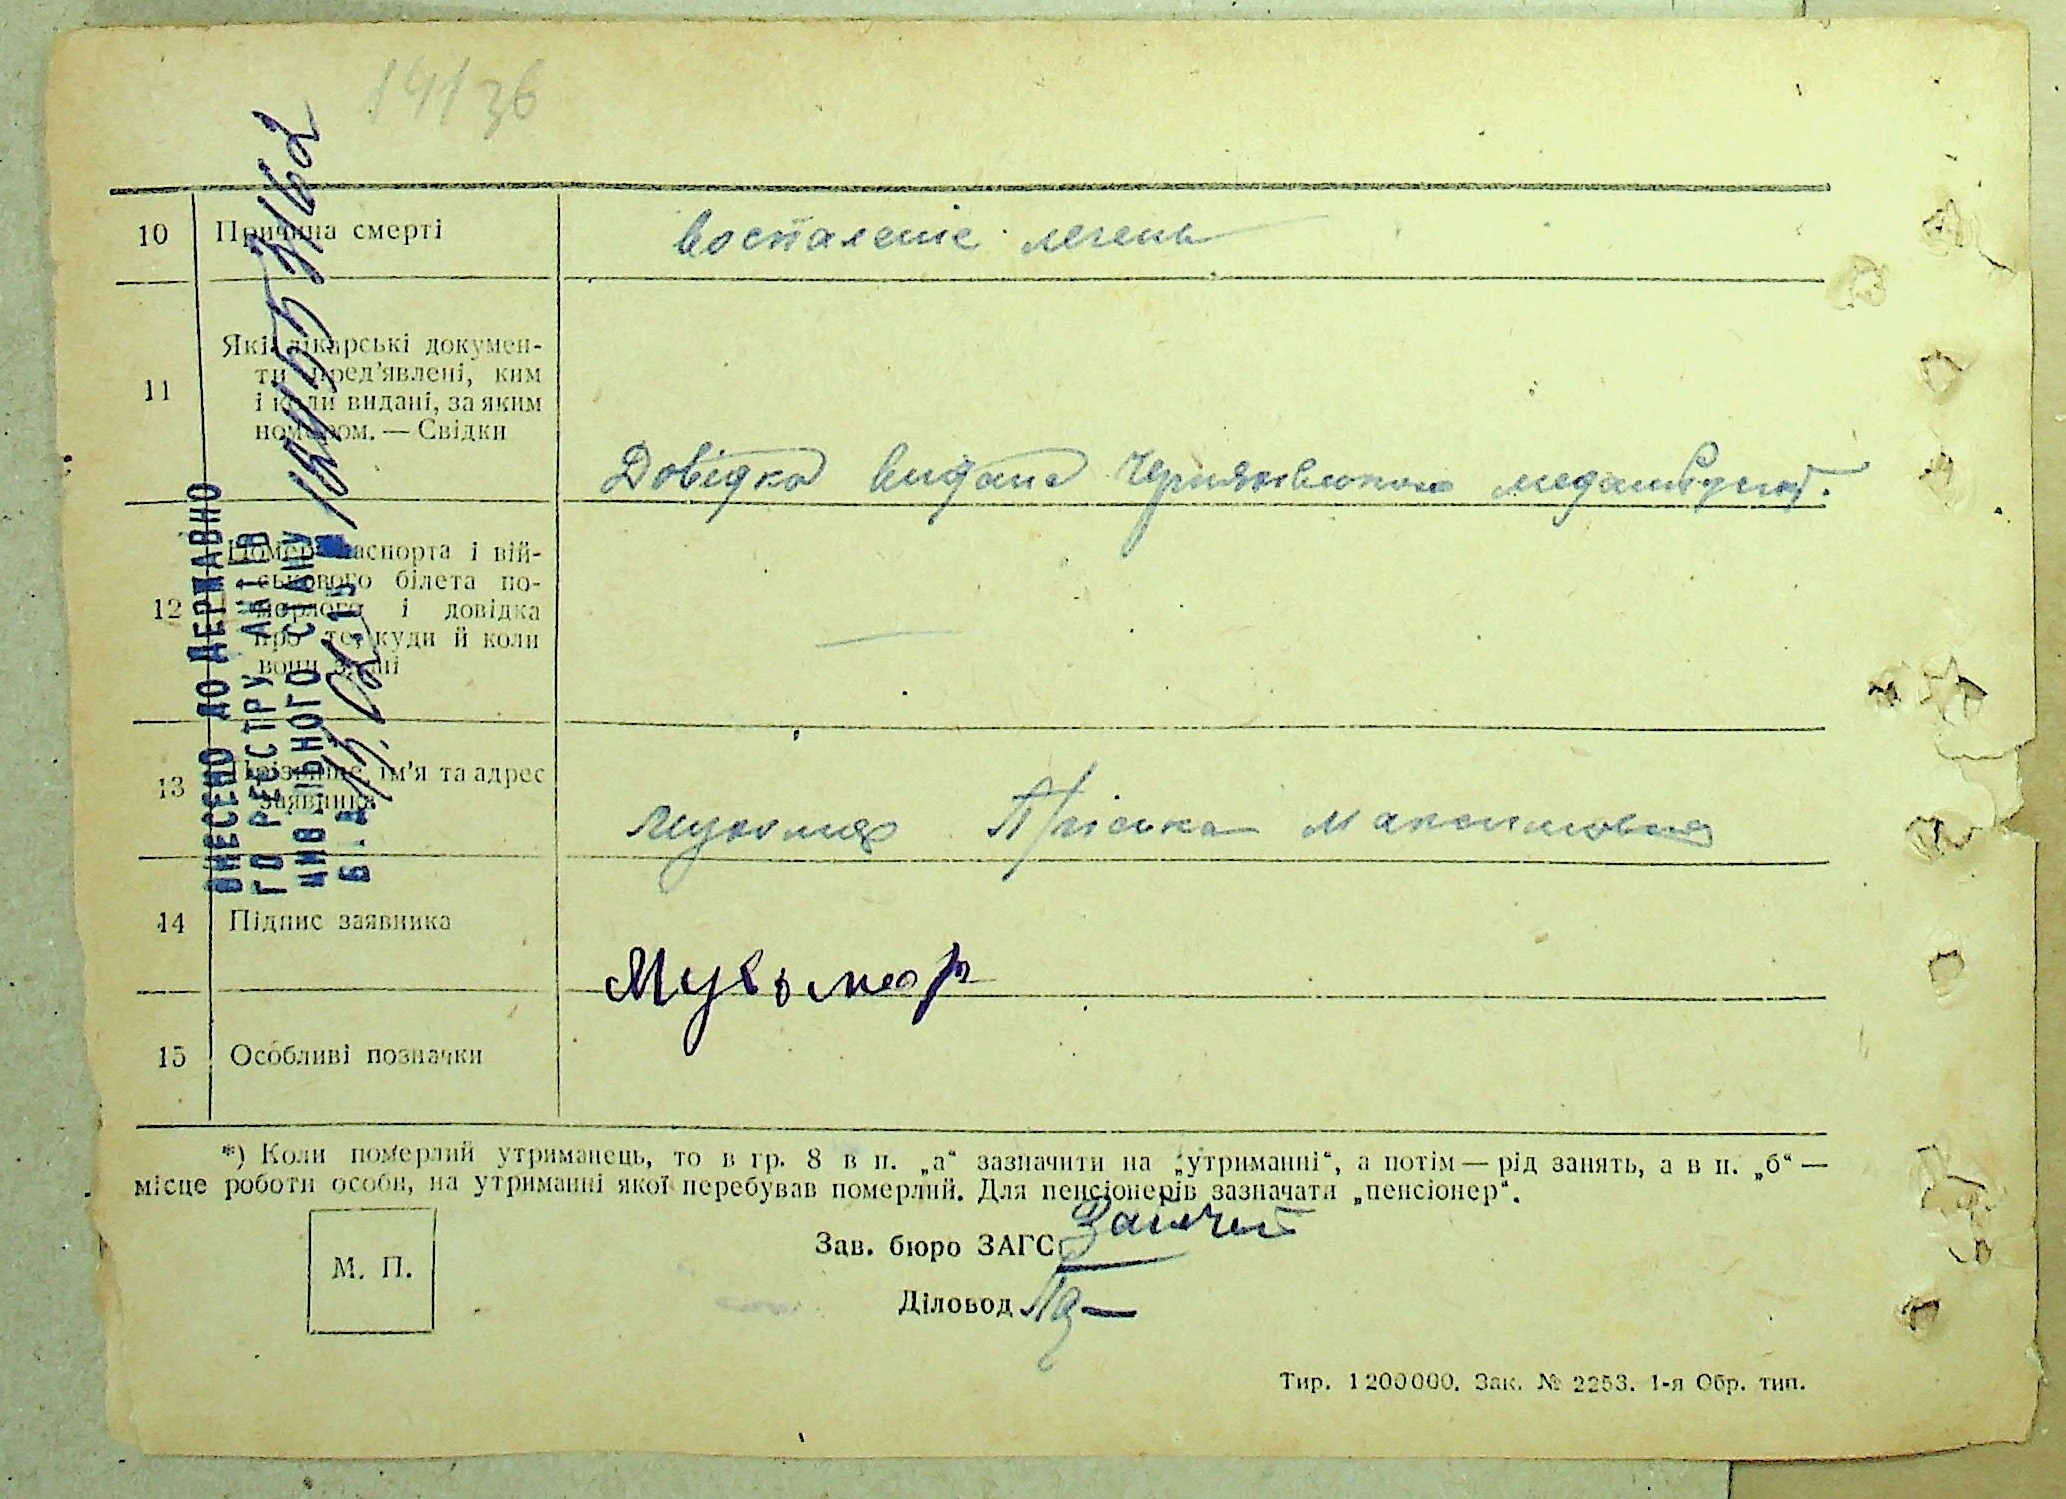 141/36
10 Причина смерті
воспаленіє легень
11 Які лікарські докумен-
ти пред'явлені, ким
і коли видані, за яким
номером. — Свідки
Довідка видана
12 Номер паспорта і вій-
ськового білета по-
мерлого і довідка
про те, куди й коли
вони здані
—
13 Прізвище, ім'я та адрес
заявника
Пріська Максимовна
14 Підпис заявника
15 Особливі позначки
*) Коли померлий утриманець, то в гр. 8 в п. „а“ зазначити на „утриманні“, а потім — рід занять, а в п. „б“ —
місце роботи особи, на утриманні якої перебував померлий. Для пенсіонерів зазначати „пенсіонер“.
М. П.
Зав. бюро ЗАГС
Діловод
Тир. 1200000. Зак. № 2253. 1-я Обр. тип.
ВНЕСЕНО ДО ДЕРЖАВНО
ГО РЕЄСТРУ АКТІВ
ЦИВІЛЬНОГО СТАНУ